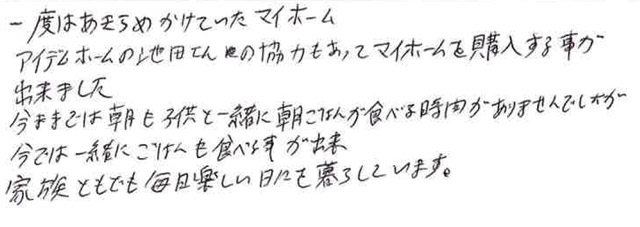 一度はあきらめかけていたマイホーム
アイデムホームの池田さんの協力もあってマイホームを購入する事が
出来ました
今までは朝も子供と一緒に朝ごはんが食べる時間がありませんでしたが
今では一緒にごはんを食べる事が出来
家族ともども毎日楽しい日々を暮らしています。